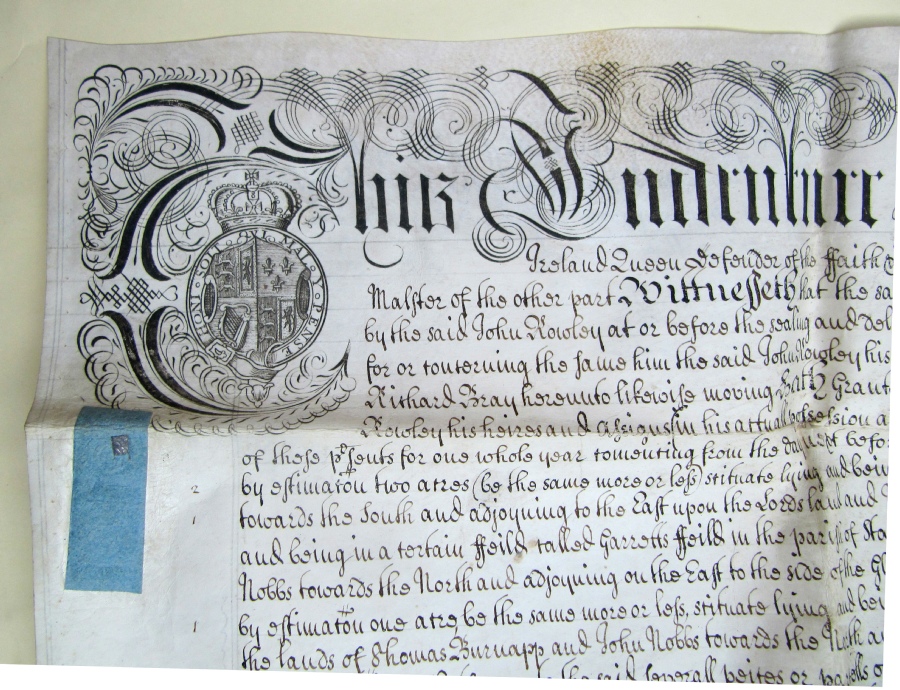 This Indenture
HONI · SOIT · QVI · MAL · Y · PENSE
Ireland Queen defender of the ffaith
Malster of the other part Wittnesseth that the sa
by the said John Rowley at or before the sealing and del
for or concerning the same him the said John Rowley his
Richard Bray hereunto likewise moving Hath Grant
Rowley his heires and assignes in his actuall possession a
of these pʳsents for one whole year comencing from the day next befor
by estimacon two acres (be the same more or less) scituate lying and bein
2
towards the South and adjoyning to the East upon the Lords land and
1
and being in a certain ffeild called Garretts ffeild in the parish of Sta
Nobbs towards the North and adjoyning on the East to the side of the Gl
by estimacon one acre be the same more or less, scituate lying and bei
1
the lands of Thomas Burnapp and John Nobbs towards the North an
the said severall peices or parcells of